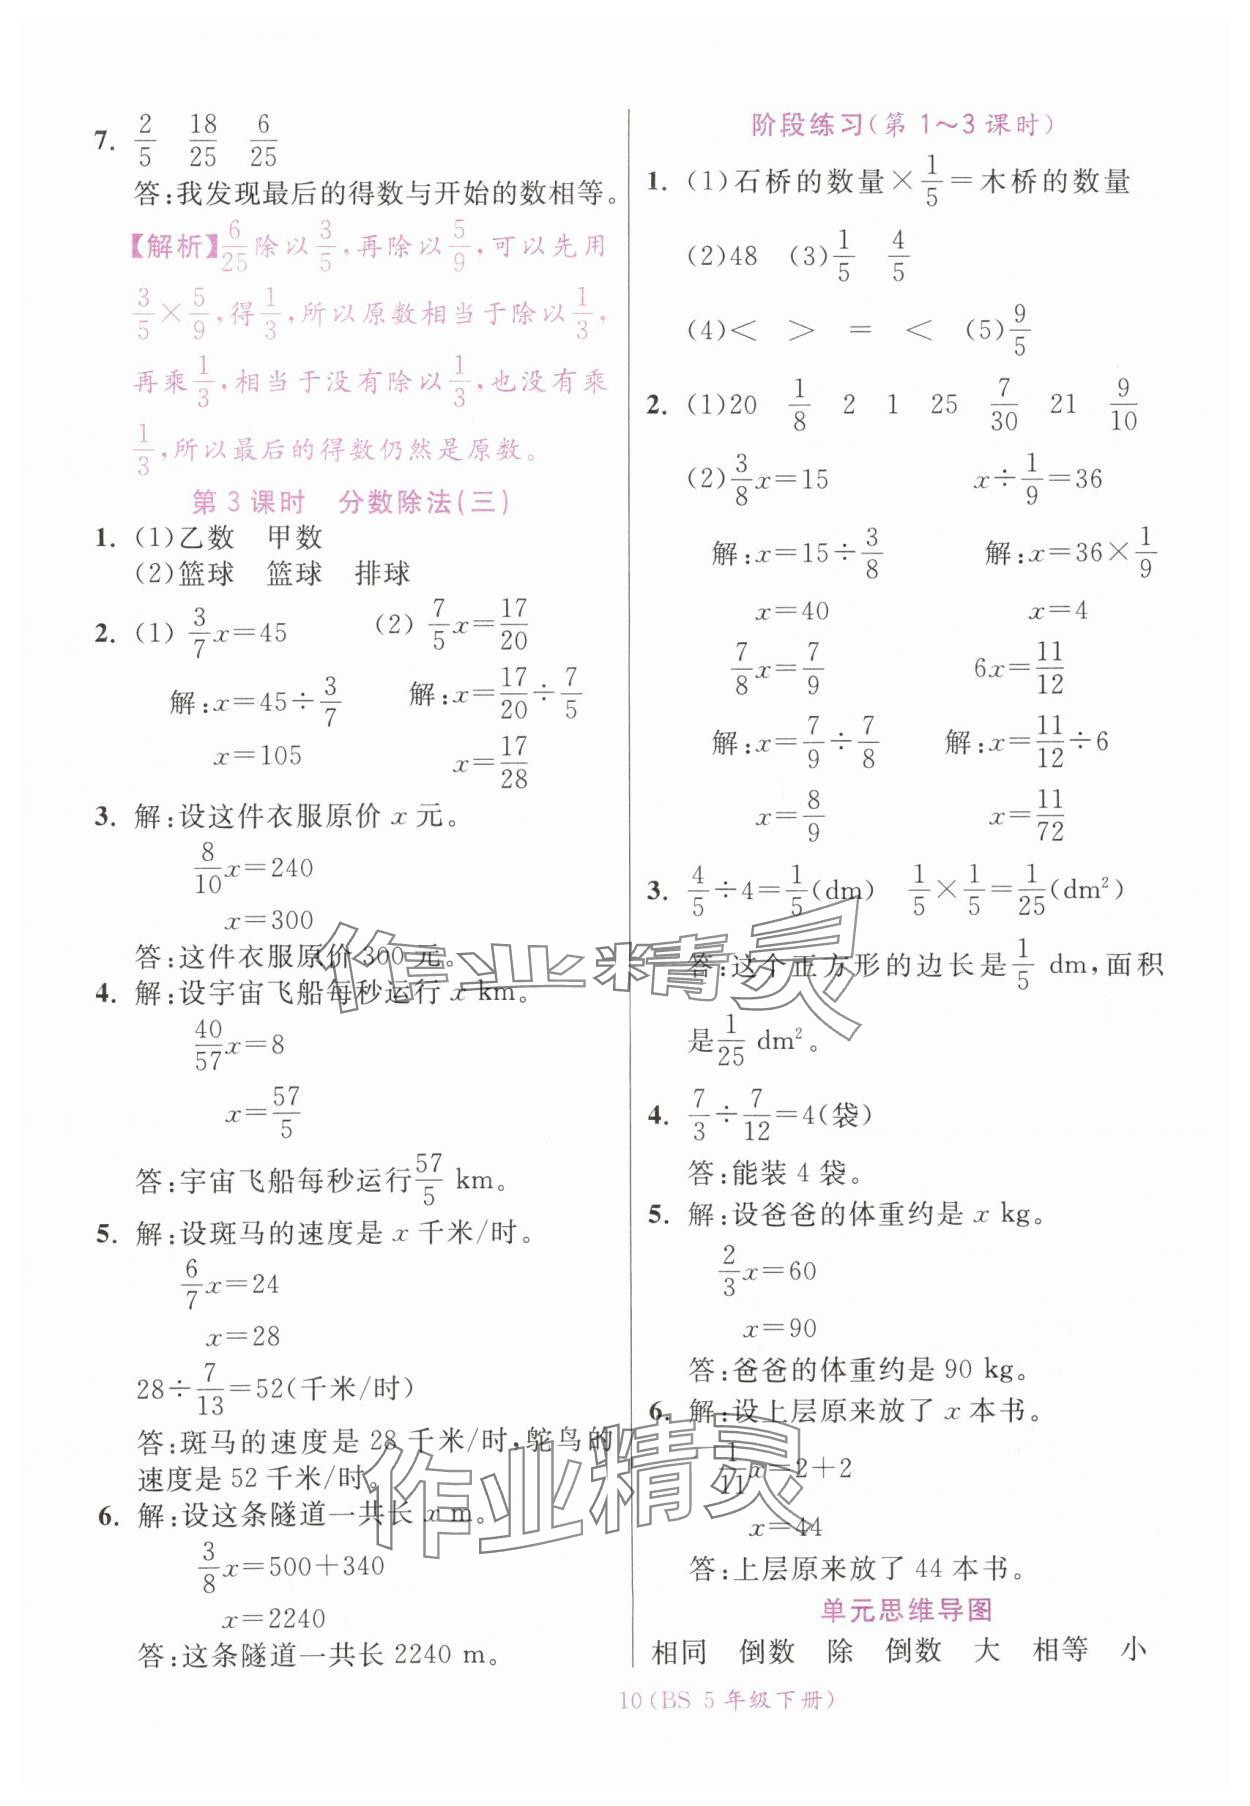 7. 2/5 18/25 6/25
答:我发现最后的得数与开始的数相等。
【解析】6/25除以3/5,再除以5/9,可以先用
3/5×5/9,得1/3,所以原数相当于除以1/3,
再乘1/3,相当于没有除以1/3,也没有乘
1/3,所以最后的得数仍然是原数。
第3课时 分数除法(三)
1. (1)乙数 甲数
(2)篮球 篮球 排球
2. (1) 3/7x=45 (2) 7/5x=17/20
解:x=45÷3/7 解:x=17/20÷7/5
x=105 x=17/28
3. 解:设这件衣服原价 x 元。
8/10x=240
x=300
答:这件衣服原价 300 元。
4. 解:设宇宙飞船每秒运行 x km。
40/57x=8
x=57/5
答:宇宙飞船每秒运行57/5 km。
5. 解:设斑马的速度是 x 千米/时。
6/7x=24
x=28
28÷7/13=52(千米/时)
答:斑马的速度是 28 千米/时,鸵鸟的
速度是 52 千米/时。
6. 解:设这条隧道一共长 x m。
3/8x=500+340
x=2240
答:这条隧道一共长 2240 m。
阶段练习(第 1～3 课时)
1. (1)石桥的数量×1/5=木桥的数量
(2)48 (3)1/5 4/5
(4)< > = < (5)9/5
2. (1)20 1/8 2 1 25 7/30 21 9/10
(2)3/8x=15 x÷1/9=36
解:x=15÷3/8 解:x=36×1/9
x=40 x=4
7/8x=7/9 6x=11/12
解:x=7/9÷7/8 解:x=11/12÷6
x=8/9 x=11/72
3. 4/5÷4=1/5(dm) 1/5×1/5=1/25(dm²)
答:这个正方形的边长是1/5 dm,面积
是1/25 dm²。
4. 7/3÷7/12=4(袋)
答:能装 4 袋。
5. 解:设爸爸的体重约是 x kg。
2/3x=60
x=90
答:爸爸的体重约是 90 kg。
6. 解:设上层原来放了 x 本书。
1/11x=2+2
x=44
答:上层原来放了 44 本书。
单元思维导图
相同 倒数 除 倒数 大 相等 小
10(BS 5 年级下册)
作业精灵
作业精灵